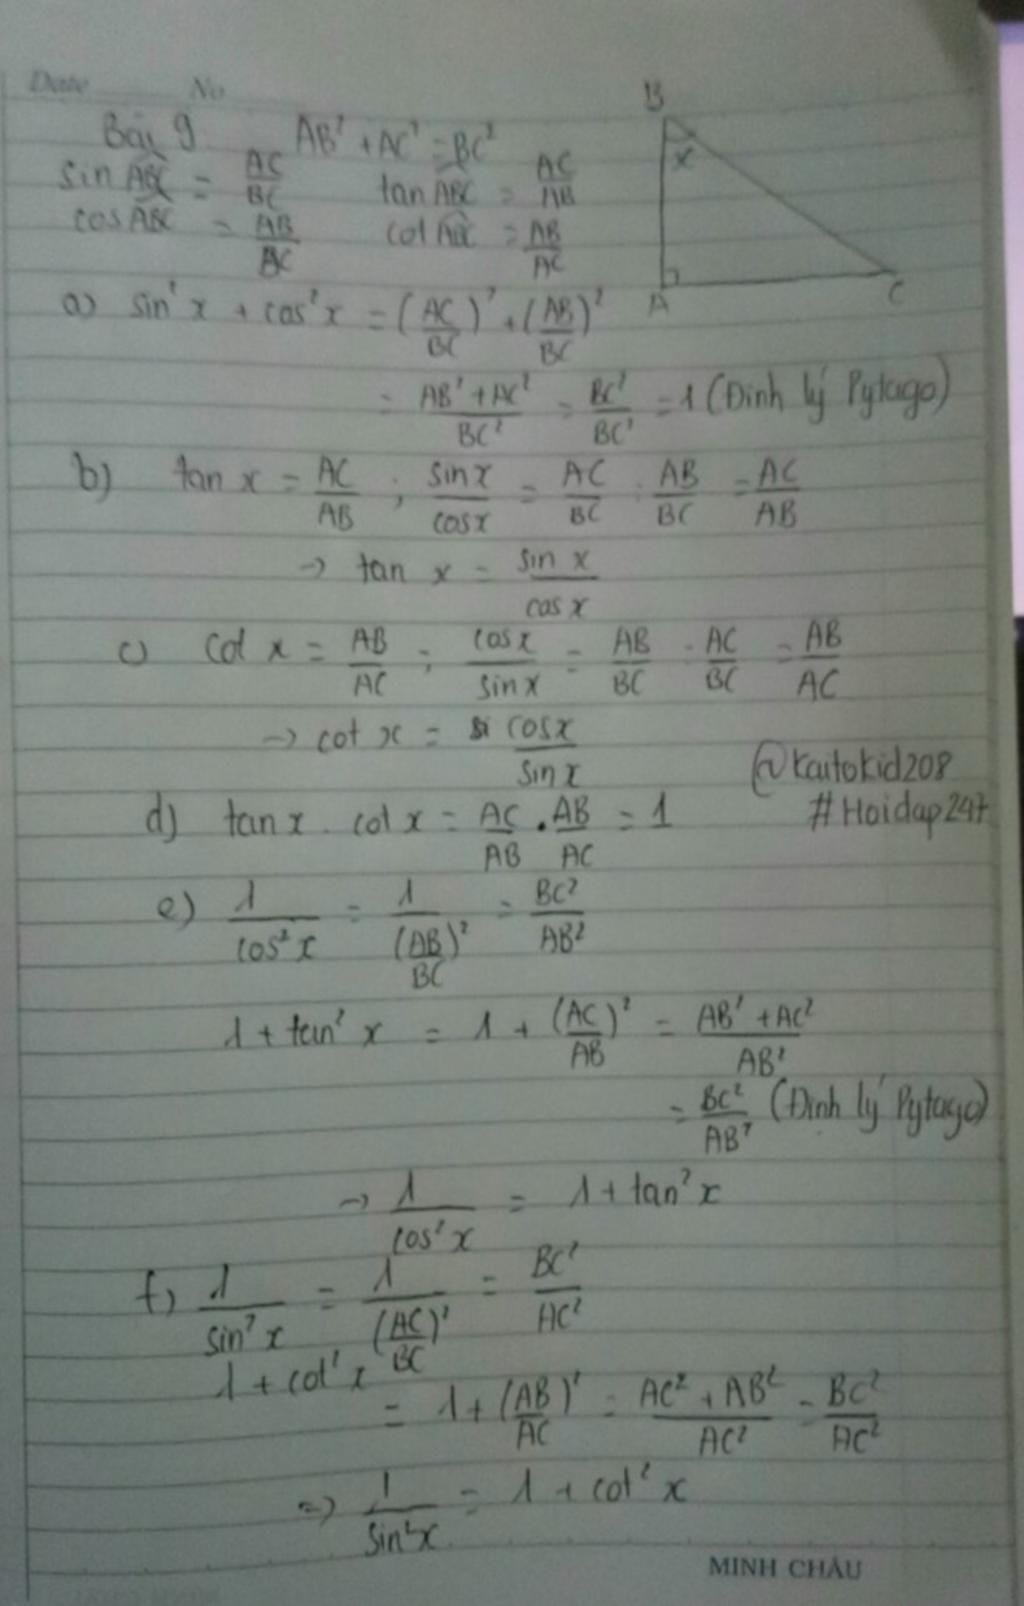 Date No
B
Bài 9 AB² + AC² = BC²
sin ABC = AC/BC tan ABC = AC/AB
x
cos ABC = AB/BC cot ABC = AB/AC
A C
a) sin²x + cos²x = (AC/BC)² + (AB/BC)²
= (AB² + AC²)/BC² = BC²/BC² = 1 (Định lý Pytago)
b) tan x = AC/AB ; sin x/cos x = AC/BC : AB/BC = AC/AB
→ tan x = sin x/cos x
c) cot x = AB/AC ; cos x/sin x = AB/BC : AC/BC = AB/AC
→ cot x = cos x/sin x
@kaitokid208
#Hoidap247
d) tan x . cot x = AC/AB . AB/AC = 1
e) 1/cos²x = 1/(AB/BC)² = BC²/AB²
1 + tan²x = 1 + (AC/AB)² = (AB² + AC²)/AB²
= BC²/AB² (Định lý Pytago)
→ 1/cos²x = 1 + tan²x
f) 1/sin²x = 1/(AC/BC)² = BC²/AC²
1 + cot²x
= 1 + (AB/AC)² = (AC² + AB²)/AC² = BC²/AC²
=> 1/sin²x = 1 + cot²x
MINH CHÂU